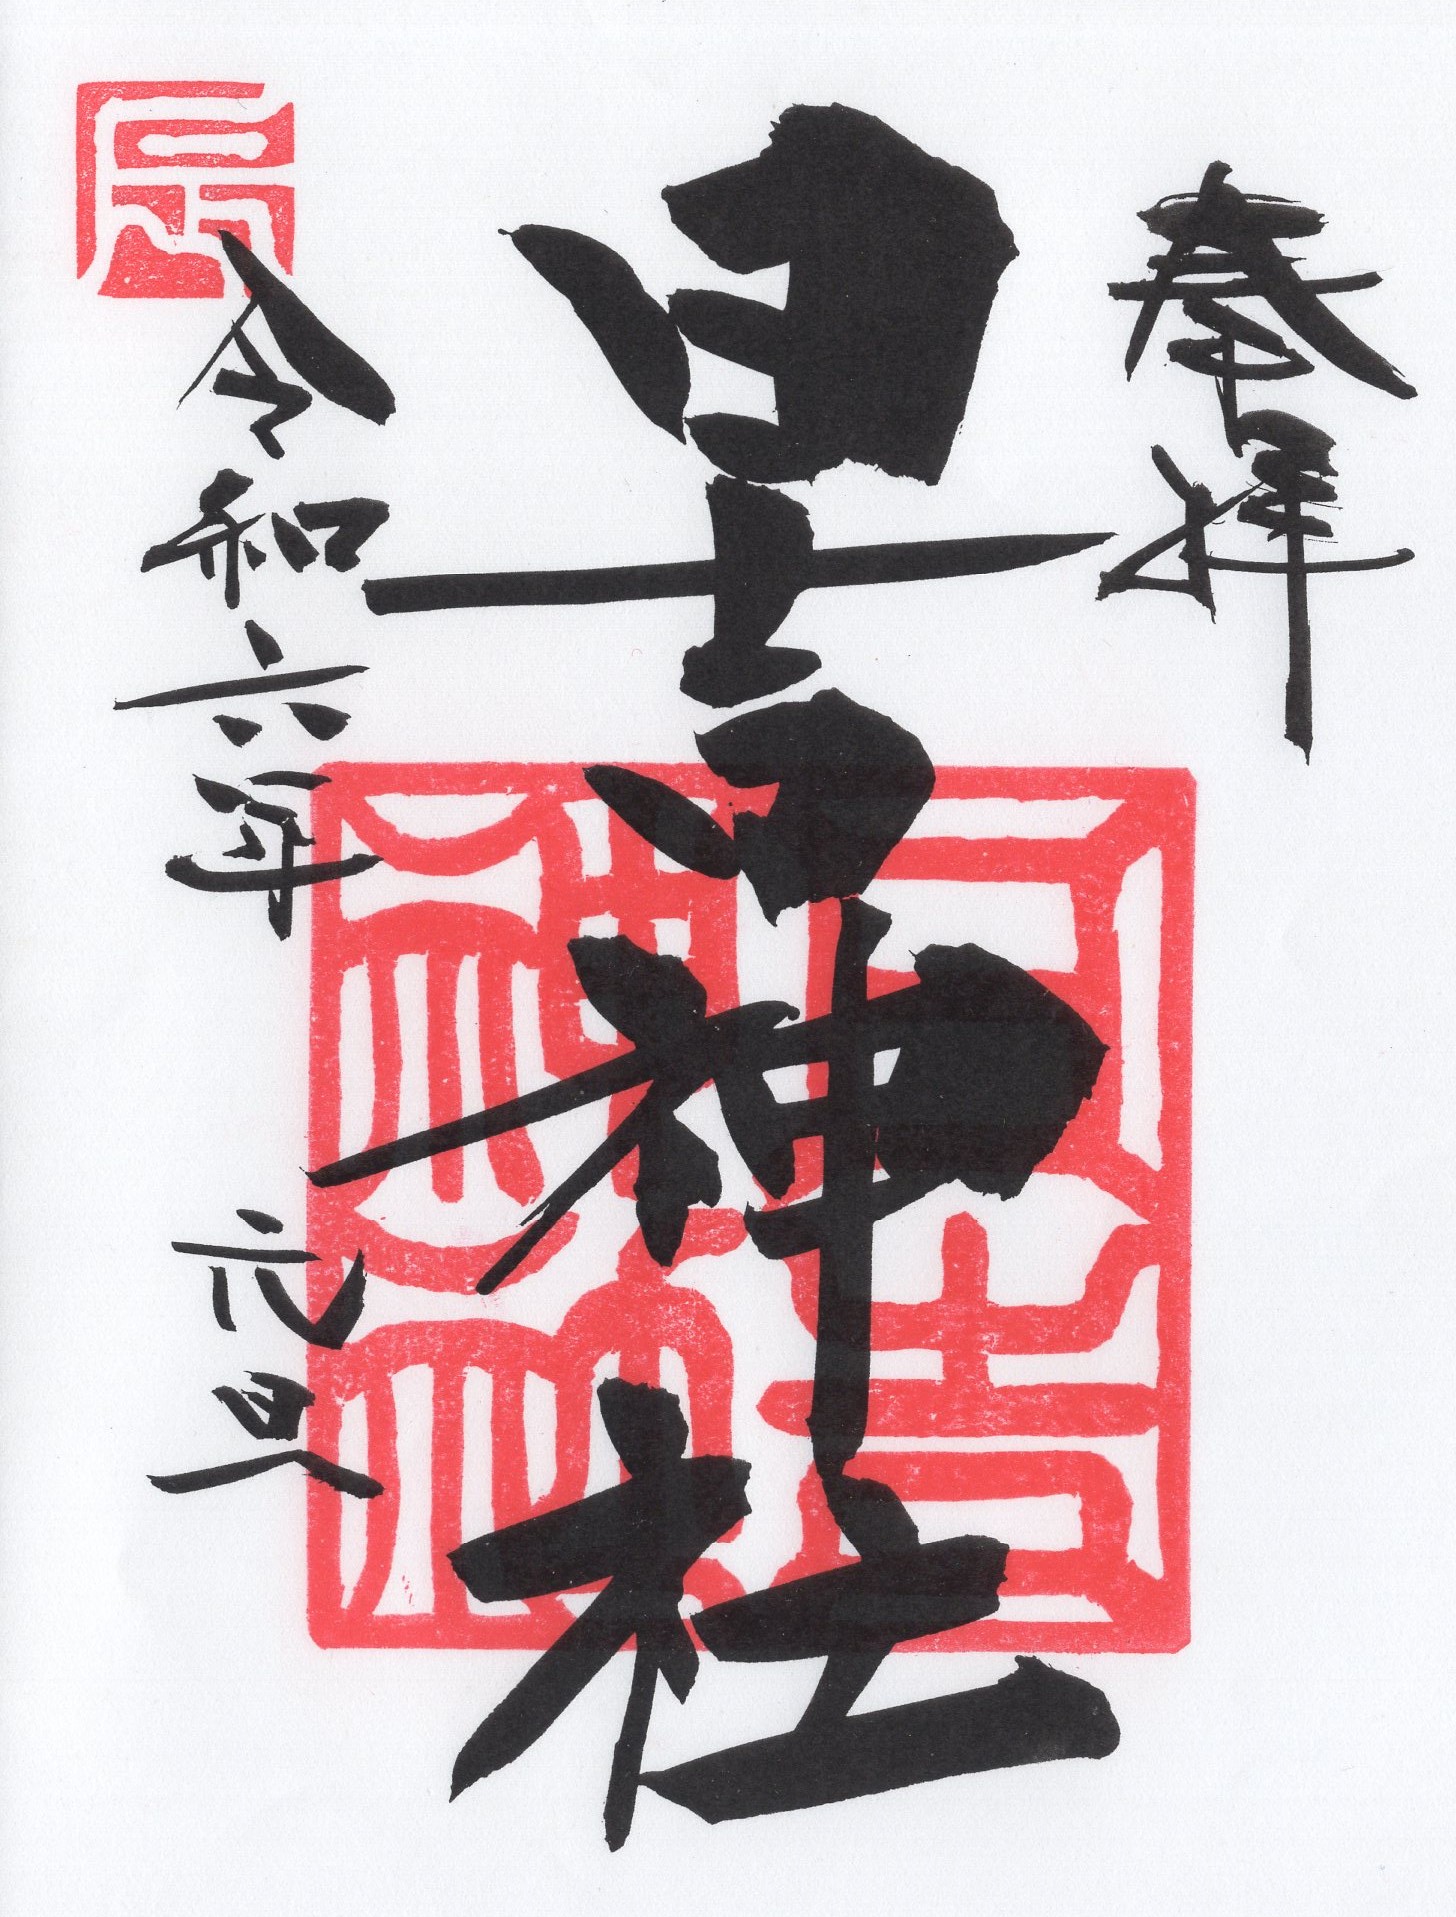 奉拝
日吉神社
日吉神社
辰
令和六年 元旦